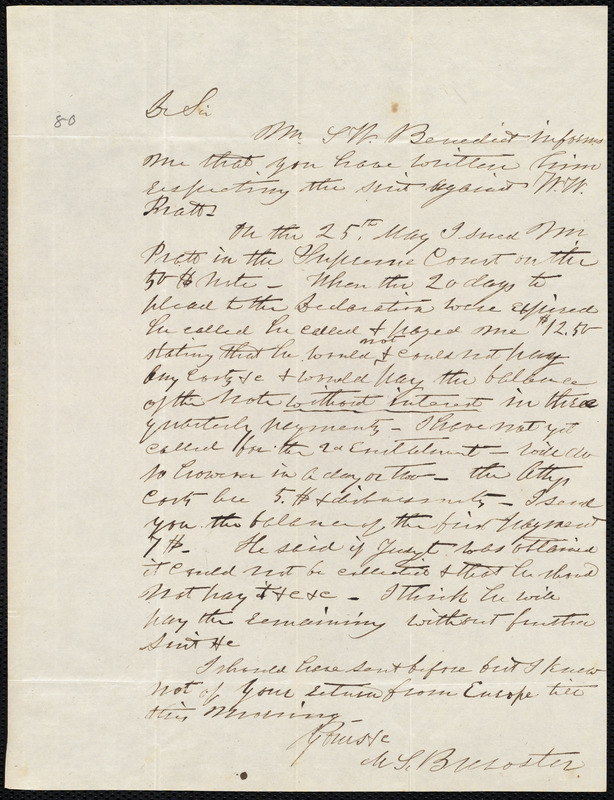 80
Dr Sir
Mr. S W. Benedict informs
me that you have written him
respecting the suit against W. W.
Pratt
On the 25th. May I sued Mr.
Pratt in the Supreme Court on the
50 $ Note - When the 20 days to
plead to the Declaration were expired
he called he called & payed me $12.50
stating that he would not & could not pay
any Costs &c & would pay the balance
of the Note without interest in three
quarterly payments - I have not yet
called for the 2d instalment - will do
so however in a day or two - the Attys
Costs are 5.$ & disbursments - I send
you the balance of the first payment
7 $ - He said if Judgt. was obtained
it could not be collected & that he should
not pay it &c &c - I think he will
pay the remaining without further
suit &c
I should have sent before but I knew
not of your return from Europe till
this Morning -
Yours &c
M S. Brewster.